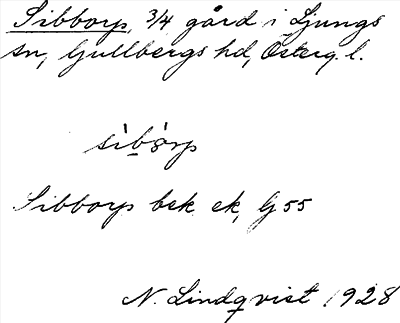 Sibborp, 3/4 gård i Ljungs
sn, Gullbergs hd, Österg. l.
Sibborp bsk ek, G 55
N. Lindqvist 1928